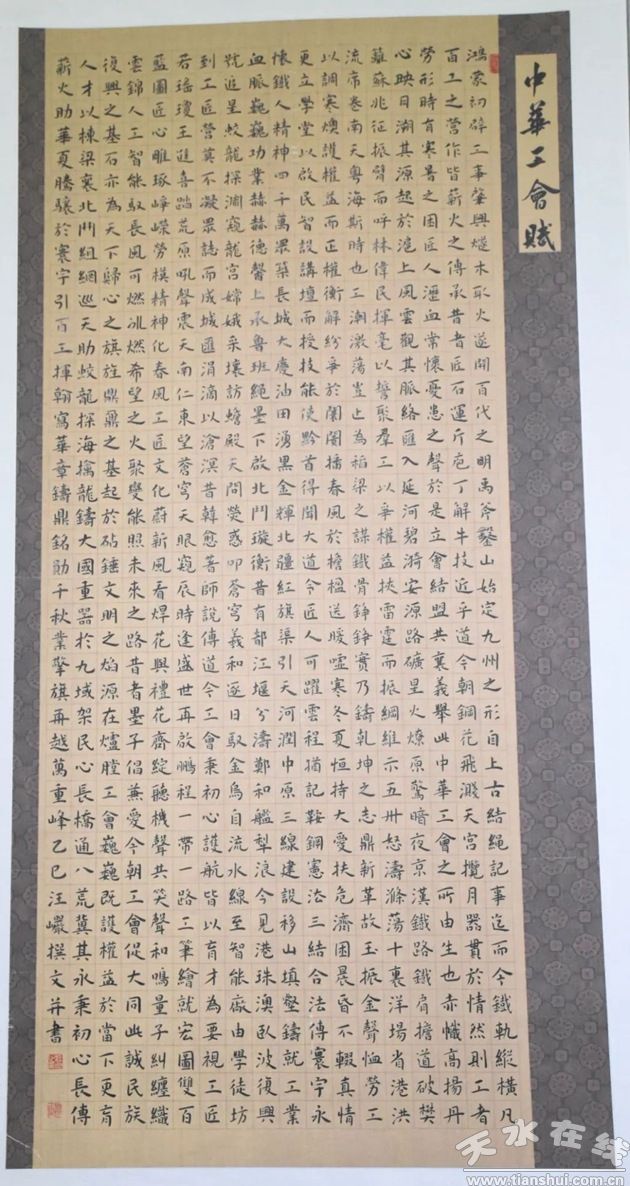 中華工會賦
鴻蒙初辟工事肇興燧木取火遂開百代之明禹斧鑿山始定九州之形自上古結繩記事迄而今鐵軌縱橫凡
百工之營作皆薪火之傳承昔者匠石運斤庖丁解牛技近乎道今朝鋼花飛濺天宮攬月器貫於情然則工者
勞形時有寒暑之困匠人瀝血常懷憂患之聲於是立會結盟共襄義舉此中華工會之所由生也赤幟高揚丹
心映日溯其源起於滬上風雲觀其脈絡匯入延河碧漪安源路礦星火燎原驚暗夜京漢鐵路鐵肩擔道破樊
籬蘇兆征振臂而呼林偉民揮毫以誓聚羣工以爭權益挾雷霆而振綱維示五卅怒濤滌蕩十裏洋場省港洪
流席卷南天粵海斯時也工潮激蕩豈止為稻粱之謀鐵骨錚錚實乃鑄乾坤之志鼎新革故玉振金聲恤勞工
以調寒燠護權益而正權衡解紛爭於闤闠播春風於檐楹送暖噓寒冬夏恒持大愛扶危濟困晨昏不輟真情
更立學堂以啟民智設講壇而授技能使黔首得聞大道令匠人可躍雲程猶記鞍鋼憲法三結合法傳寰宇永
懷鐵人精神四千萬眾築長城大慶油田湧黑金輝北疆紅旗渠引天河潤中原三線建設移山填壑鑄就工業
血脈巍巍功業赫赫德馨上承魯班繩墨下啟北鬥璇衡昔有都江堰兮濤鄭和艦犁浪今見港珠澳臥波復興
號追星蛟龍探淵窺龍宮嫦娥采壤訪蟾殿天問熒惑叩蒼穹羲和逐日馭金烏自流水線至智能廠由學徒坊
到工匠營莫不凝眾誌而成城匯涓滴以滄溟昔韓愈著師說傳道今工會秉初心護航皆以育才為要視工匠
若瑤瓊王進喜踏荒原吼聲震天南仁東望蒼穹天眼窺辰時逢盛世再啟鵬程一帶一路工筆繪就宏圖雙百
藍圖匠心雕琢崢嶸勞模精神化春風工匠文化蔚新風看焊花與禮花齊綻聽機聲共笑聲和鳴量子糾纏織
雲錦人工智能馭長風可燃冰燃希望之火聚變能照未來之路昔者墨子倡兼愛今朝工會促大同此誠民族
復興之基石亦為天下歸心之旗旌鼎鼎之基起於砧錘文明之焰源在爐膛工會巍巍既護權益於當下更育
人才以棟梁襄北鬥組網巡天助蛟龍探海擒龍鑄大國重器於九域架民心長橋通八荒冀其永秉初心長傳
薪火助華夏騰驤於寰宇引百工揮翰寫華章鑄鼎銘勛千秋業擎旗再越萬重峰乙巳汪巘撰文并書
天水在线
www.tianshui.com.cn